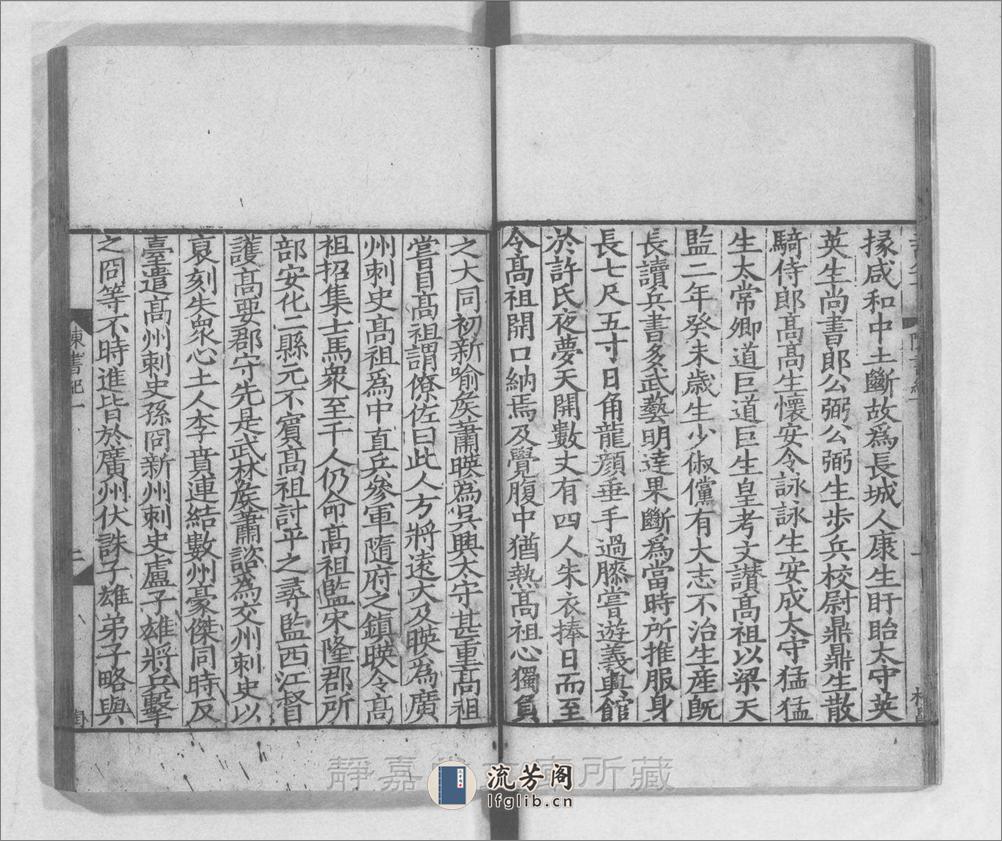 掾咸和中土斷故爲長城人康生盱眙太守英
英生尚書郎公弼公弼生步兵校尉鼎鼎生散
騎侍郎高高生懷安令詠詠生安成太守猛猛
生太常卿道巨道巨生皇考文讃高祖以梁天
監二年癸未歲生少俶儻有大志不治生産既
長讀兵書多武藝明達果斷爲當時所推服身
長七尺五寸日角龍顔垂手過膝嘗遊義興館
於許氏夜夢天開數丈有四人朱衣捧日而至
令高祖開口納焉及覺腹中猶熱高祖心獨負
之大同初新喻侯蕭暎為吳興太守甚重高祖
嘗目高祖謂僚佐曰此人方將遠大及暎為廣
州刺史高祖爲中直兵參軍隨府之鎮暎令高
祖招集士馬衆至千人仍命高祖監宋隆郡所
部安化二縣元不賓高祖討平之尋監西江督
護高要郡守先是武林侯蕭諮為交州刺史以
裒刻失衆心土人李賁連結數州豪傑同時反
臺遣高州刺史孫冏新州刺史盧子雄將兵擊
之冏等不時進皆於廣州伏誅子雄弟子略與
陳書紀一
二
靜嘉堂文庫所藏
流芳阁
lfglib.cn